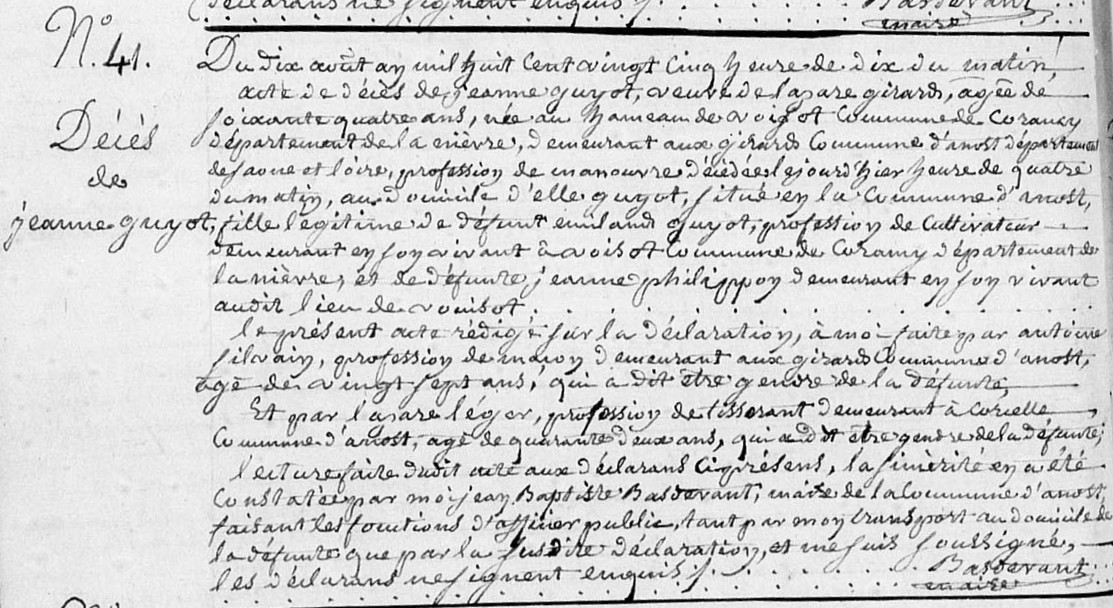 déclarans ne signent enquis /. Basdevant
maire
N.° 41.
Décès
de
jeanne guyot,
Du dix août an mil huit cent vingt cinq heure de dix du matin,
acte de décès de jeanne guyot, veuve de lazare girard, agée de
soixante quatre ans, née au hameau de voisot commune de Corancy
département de la nièvre, demeurant aux girards Commune d'anost département
de saone et loire, profession de manoeuvre décédée le jourd'hier heure de quatre
du matin, au domicile d'elle guyot, situé en la Commune d'anost,
fille légitime de défunt emiland guyot, profession de Cultivateur
demeurant en son vivant à voisot Commune de Corancy département de
la nièvre, et de défunte, jeanne philippon demeurant en son vivant
audit lieu de vouisot.
le présent acte rédigé sur la déclaration, à moi faite par antoine
silvain, profession de maçon demeurant aux girards Commune d'anost,
agé de vingt sept ans, qui a dit être gendre de la défunte,
Et par lazare léger, profession de tisserant demeurant à Corcelle,
Commune d'anost, agé de quarante deux ans, qui a dit être gendre de la défunte;
lecture faite dudit acte aux déclarans Ciprésens, la sincérité en a été
Constatée par moi jean Baptiste Basdevant, maire de la Commune d'anost,
faisant les fonctions d'officier public, tant par mon transport au domicile de
la défunte que par la susdite déclaration, et me suis soussigné,
les déclarans ne signent enquis /. Basdevant
maire